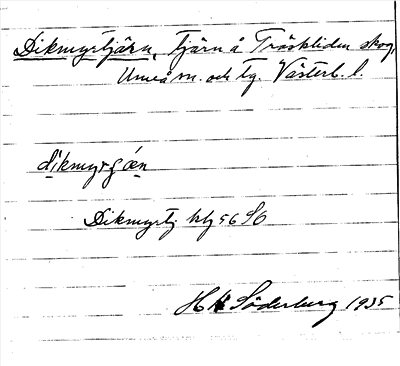 Dikmyrtjärn, tjärn å Träskliden skog,
Umeå sn. och tg. Västerb. l.
dikmyrɟœn
Dikmyrtj hbg 56 SO
H Söderburg 1935